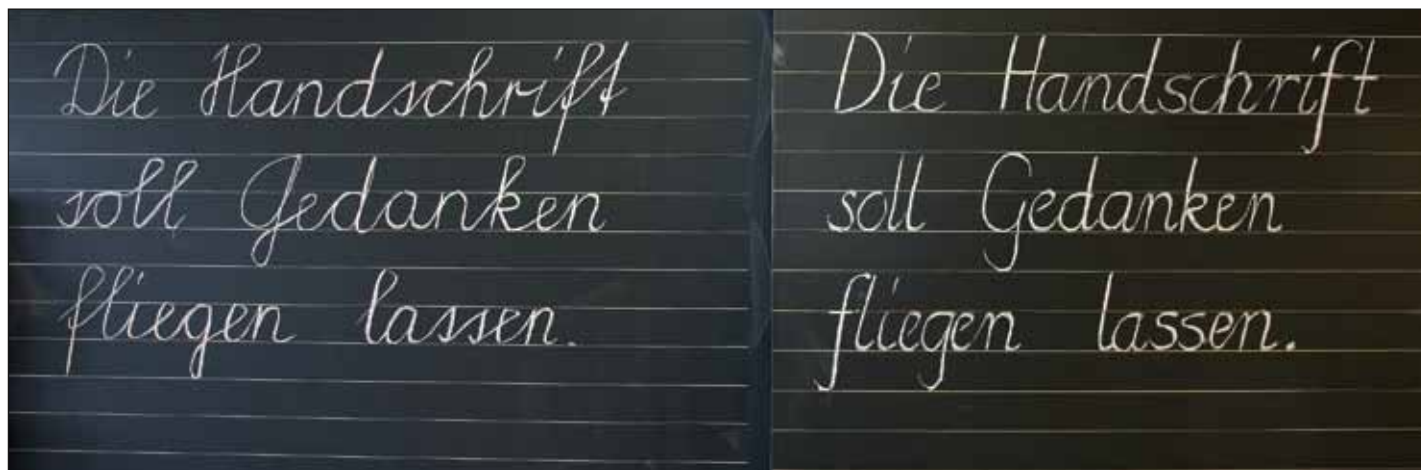 Die Handschrift
soll Gedanken
fliegen lassen.
Die Handschrift
soll Gedanken
fliegen lassen.